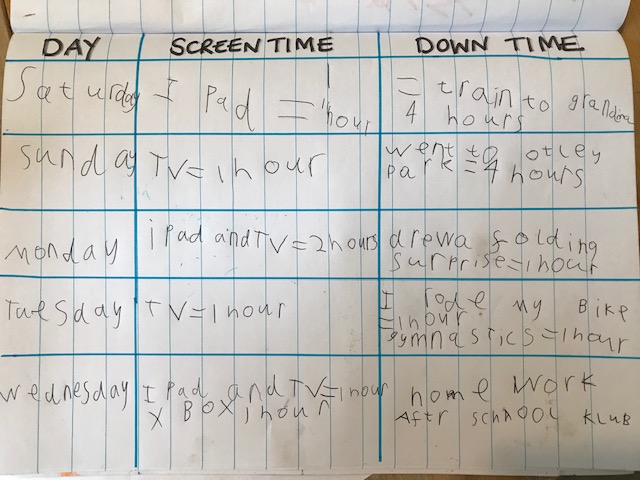 DAY SCREEN TIME DOWN TIME
Saturday I Pad = 1 hour
= train to grandma
4 hours
Sunday TV = 1 hour
went to otley
park = 4 hours
monday i Pad and TV = 2 hours
drew a folding
surprise = 1 hour
Tuesday TV = 1 hour
I rode my Bike
= 1 hour
gymnastics = 1 hour
wednesday I Pad and TV = 1 hour
X BOX 1 hour
home work
Aftr school KLUB